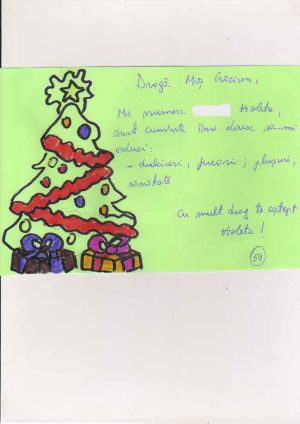 Dragă Moș Crăciun,
Mă numesc Violeta,
sunt cuminte Îmi doresc să-mi
aduci:
- dulciuri, jucării; plușuri,
sănătate
Cu mult drag te aștept
Violeta!
59